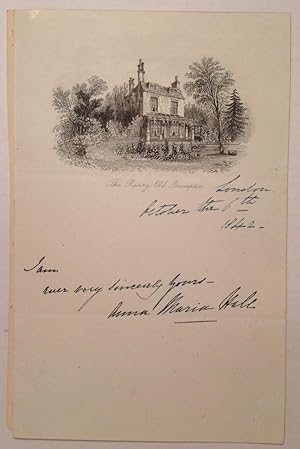 The Rosery, Old Brompton.
London
October the 6th
1842-
I am
ever very sincerely yours-
Anna Maria Hall